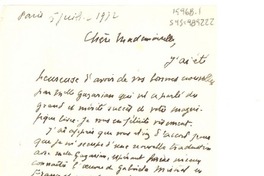 Paris 5 juill. 1972
Chère Mademoiselle,
J'ai été
heureuse d'avoir de vos bonnes nouvelles
par Mlle Gazarian qui m'a parlé du
grand et mérité succès de votre magni-
fique livre. Je vous en félicite vivement.
J'ai appris que vous étiez d'accord pour
que je m'occupe d'une nouvelle traduction
avec Mlle Gazarian,
connaître l'œuvre de Gabriela Mistral en